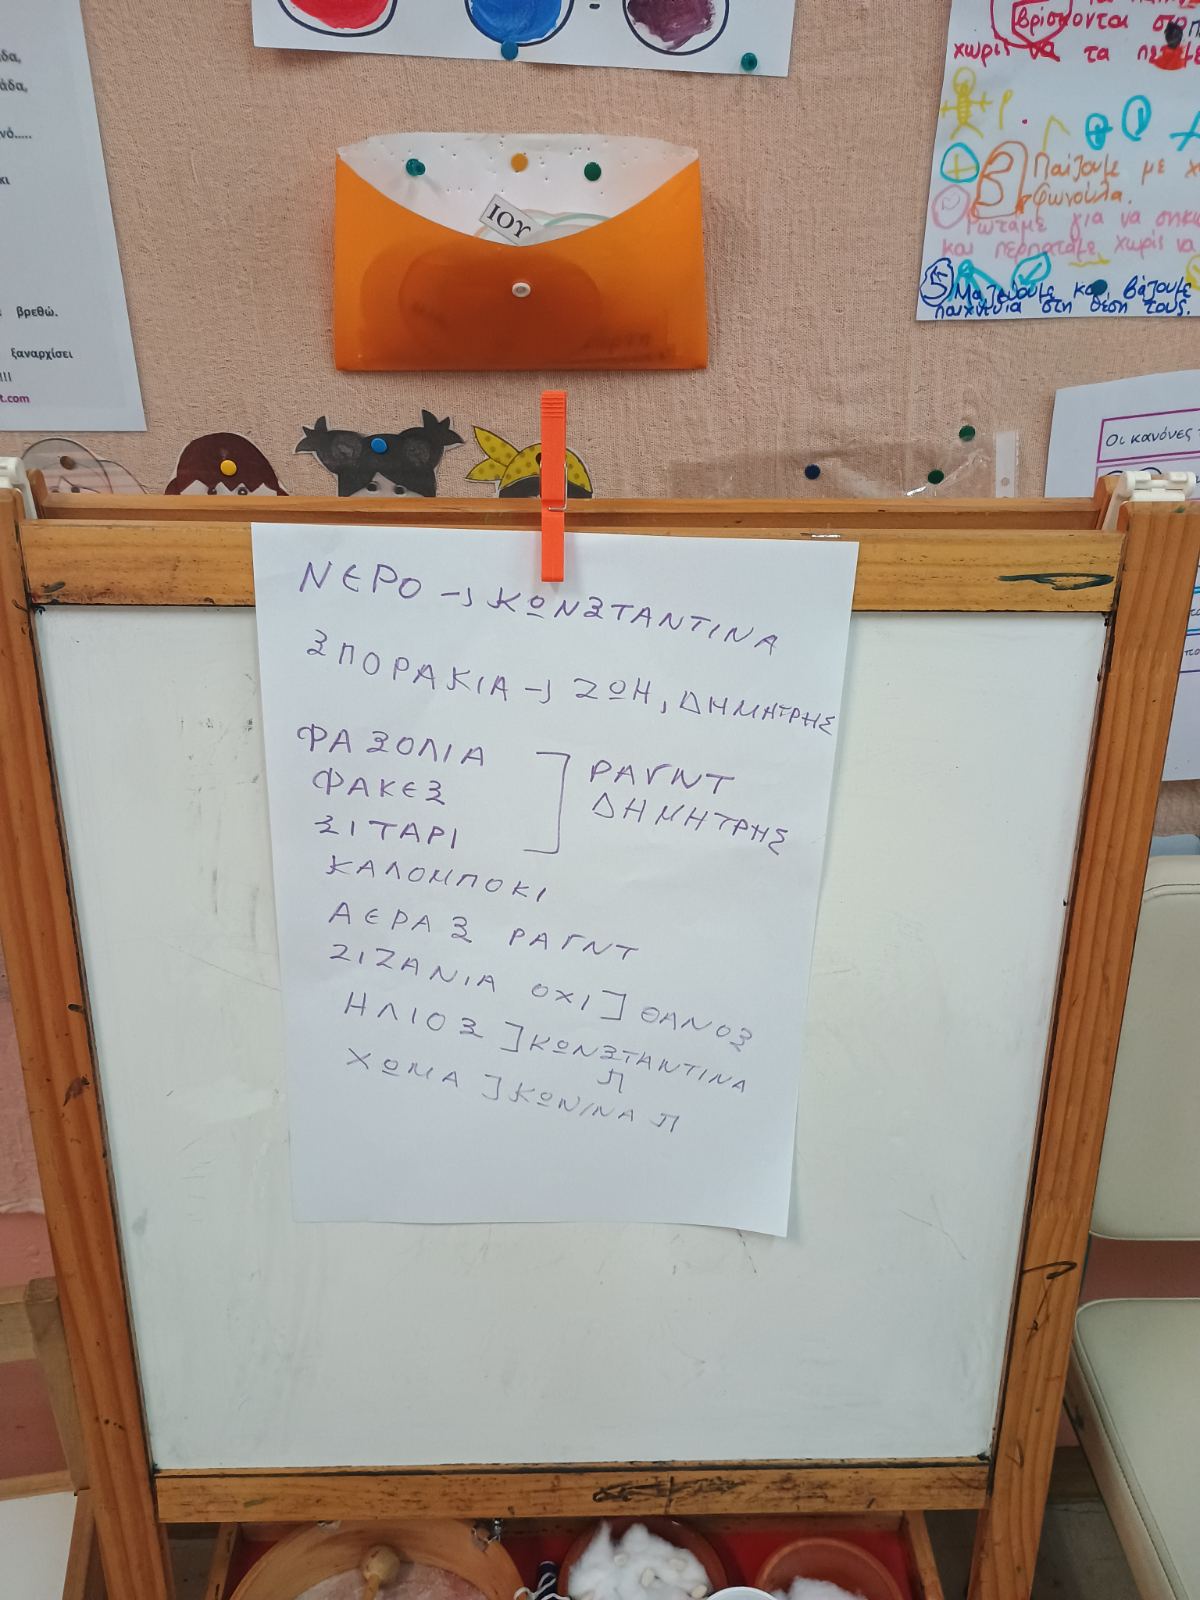 άδα,
νό.....
κι
βρεθώ.
ξαναρχίσει
!!!
t.com
ΙΟΥ
βρίσκονται στο
χωρίς να τα
3 Παίζουμε με
φωνούλα.
Ρωτάμε για να
και περπατάμε χωρίς να
5 Μαζεύουμε και βάζουμε
παιχνίδια στη θέση τους.
Οι κανόνες
ΝΕΡΟ → ΚΩΝΣΤΑΝΤΙΝΑ
ΣΠΟΡΑΚΙΑ → ΖΩΗ, ΔΗΜΗΤΡΗΣ
ΦΑΣΟΛΙΑ ] ΡΑΓΝΤ
ΦΑΚΕΣ ΔΗΜΗΤΡΗΣ
ΣΙΤΑΡΙ
ΚΑΛΟΜΠΟΚΙ
ΑΕΡΑΣ ΡΑΓΝΤ
ΖΙΖΑΝΙΑ ΟΧΙ ] ΘΑΝΟΣ
ΗΛΙΟΣ ] ΚΩΝΣΤΑΝΤΙΝΑ
Π
ΧΩΜΑ ] ΚΩΝ/ΝΑ Π